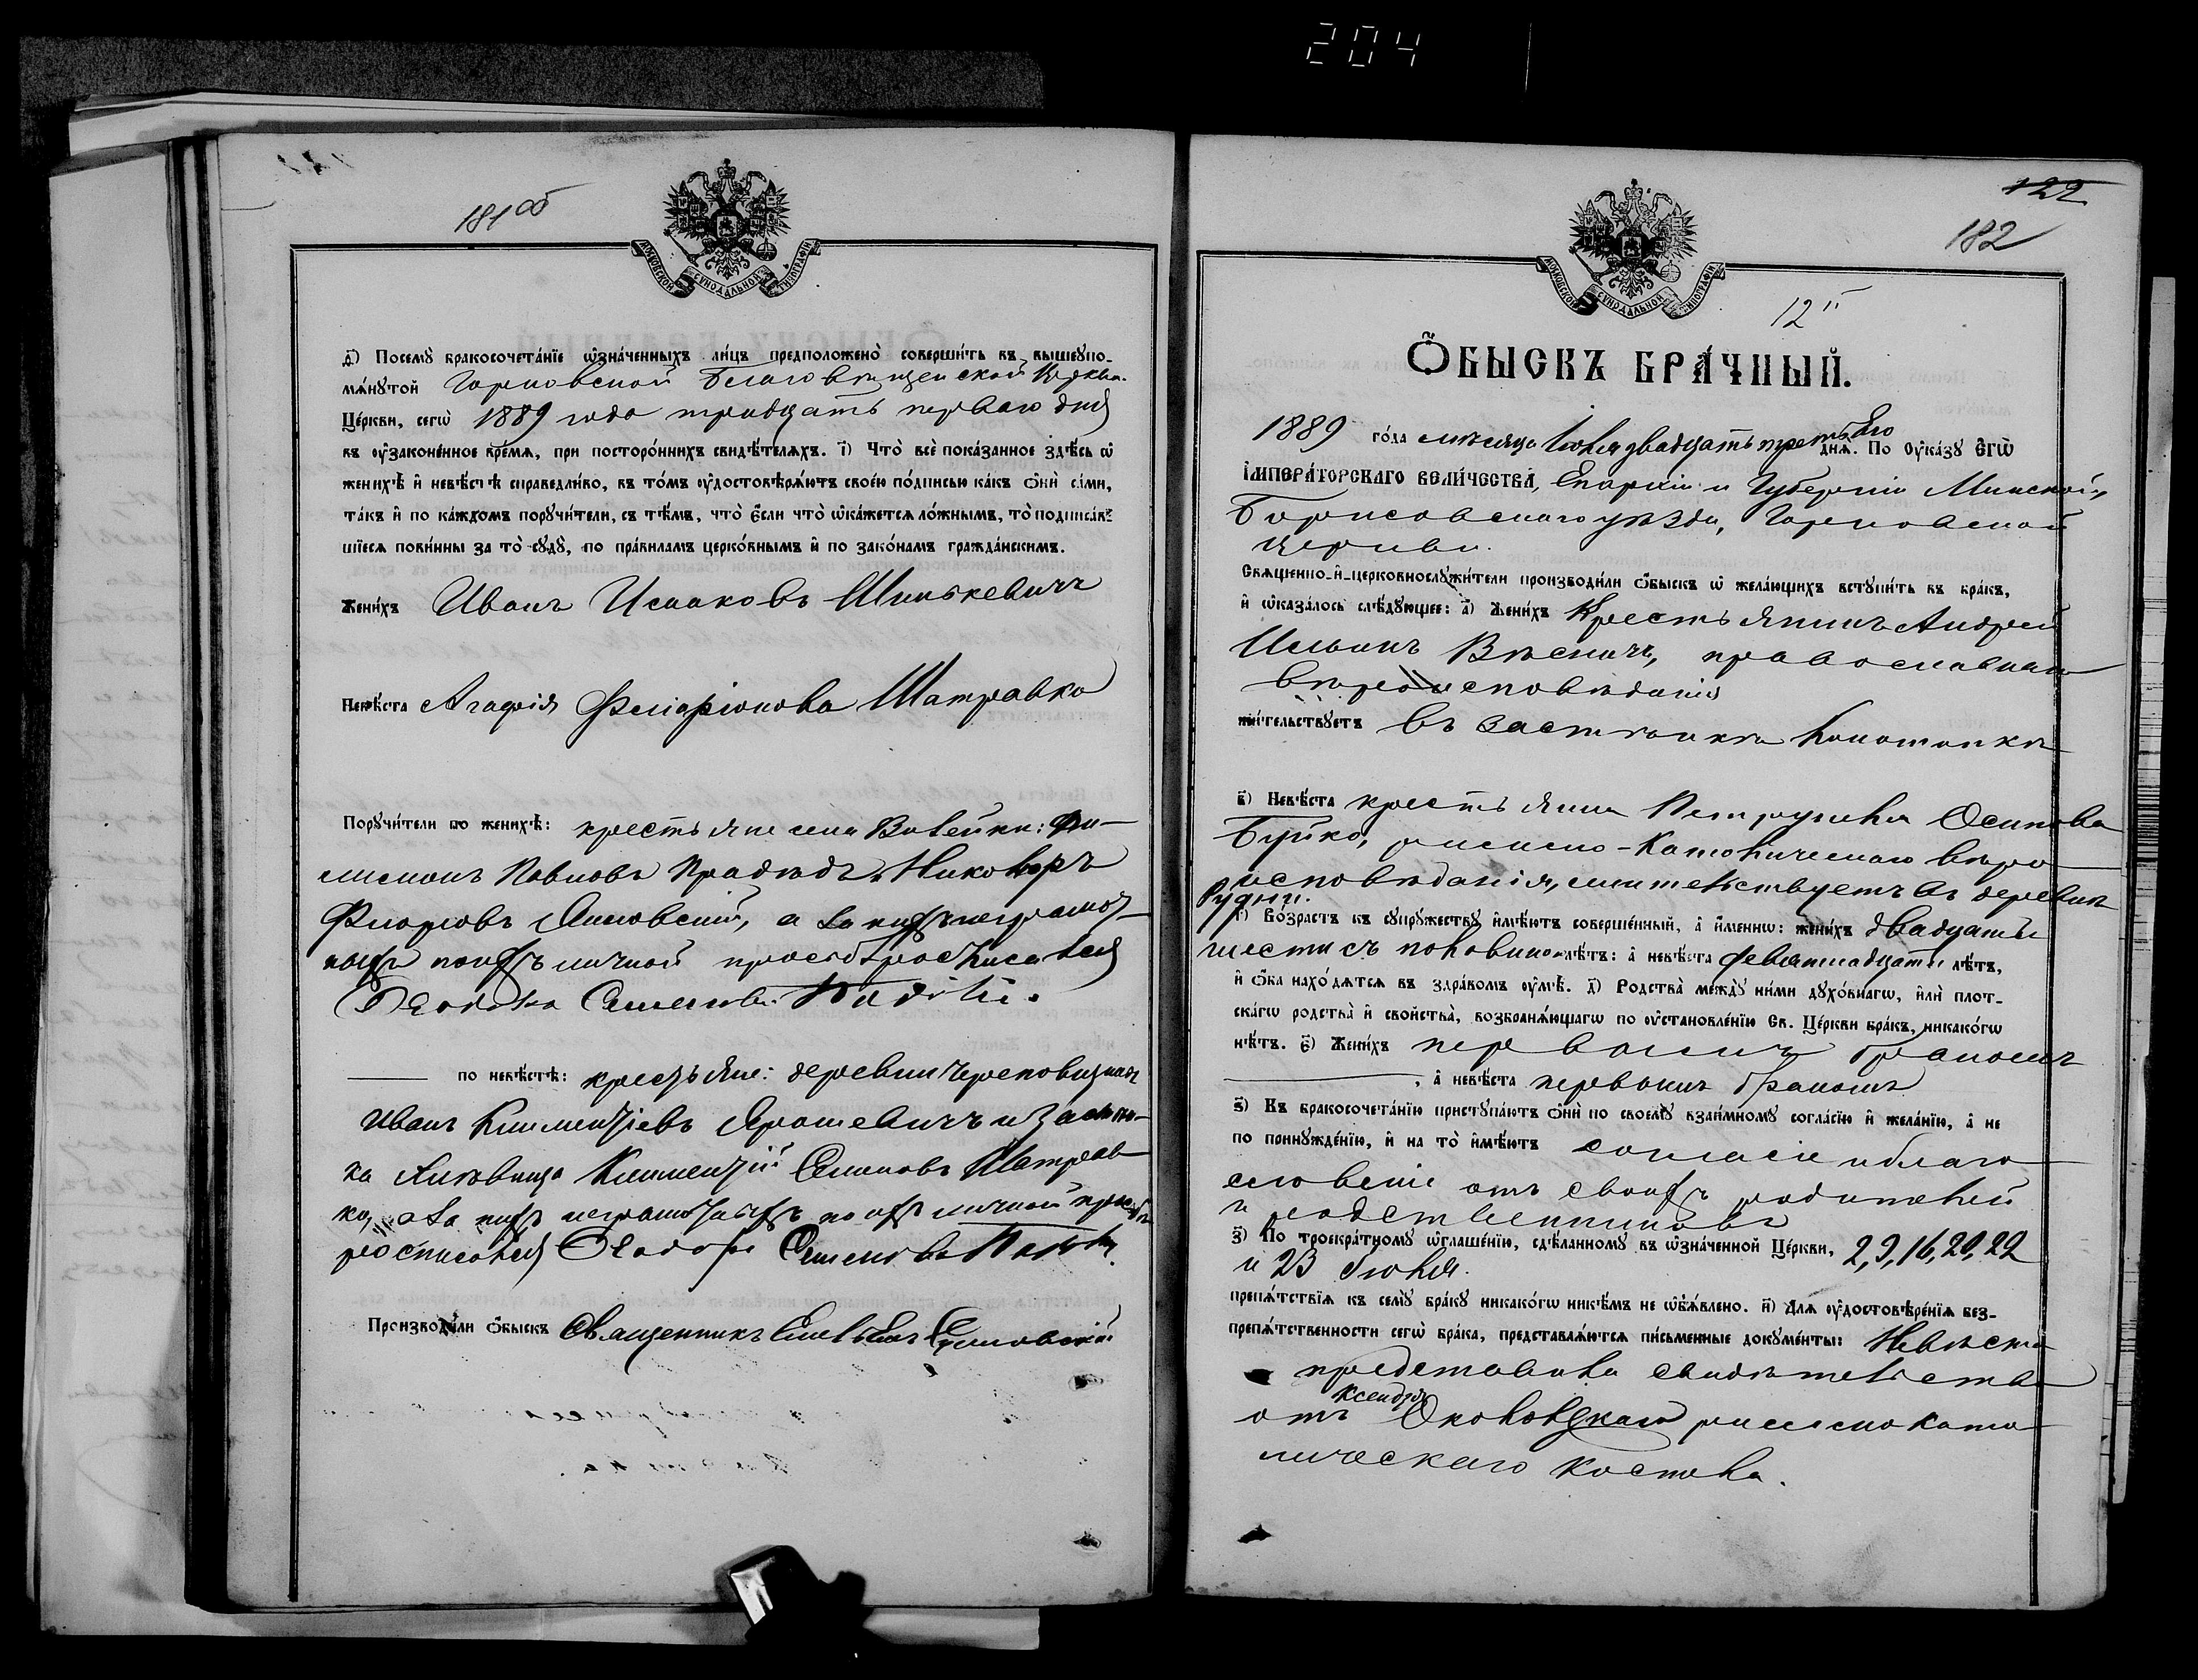 204
181об
МОСКОВСКОЙ СѴНОДАЛЬНОЙ ТИПОГРАФІИ
д҃) Посемꙋ бракосочета́нїе ѡ҆зна́ченныхъ ли́цъ предположено̀ соверши́ть въ вышеꙋпо-
мѧ́нꙋтой Благовѣщенской
Це́ркви, сегѡ̀ 1889 года тридцать перваго дня
въ ᲂу҆зако́ненное вре́мѧ, при посторо́ннихъ свидѣ́телѧхъ. і҃) Что̀ всѐ пока́занное здѣ́сь ѡ҆
женихѣ̀ и҆ невѣ́стѣ справедли́во, въ то́мъ ᲂу҆достовѣрѧ́ютъ свое́ю по́дписью ка́къ ѻ҆нѝ са́ми,
та́къ и҆ по ка́ждомъ порꙋчи́тели, съ тѣ́мъ, что̀ е҆́сли что̀ ѡ҆ка́жетсѧ ло́жнымъ, то̀ подписа́в-
шїесѧ пови́нны за то̀ сꙋдꙋ̀, по пра́виламъ церко́внымъ и҆ по зако́намъ гражда́нскимъ.
Жени́хъ Иванъ Исааковъ Шинькевичъ
Невѣ́ста Агафія Фларіонова Шатравко
Порꙋчи́тели по женихѣ̀: крестьяне села Волейки: Фи-
лимонъ Павловъ Прадѣдъ и Никаноръ
Флоровъ а за нихъ неграмот-
ныхъ по ихъ личной просьбѣ росписался
Семеновъ
по невѣ́стѣ: крестьяне: деревни
Иванъ Климентіевъ Ярошевичъ и застѣн-
ка Климентій Семеновъ Шатрав-
ко, а за нихъ неграмотныхъ по ихъ личной просьбѣ
росписался Семеновъ
Производи́ли ѻ҆́быскъ Священникъ
122
182
МОСКОВСКОЙ СѴНОДАЛЬНОЙ ТИПОГРАФІИ
12
Ѻ҆́БЫСКЪ БРА́ЧНЫЙ.
1889 го́да мѣсяца Іюля двадцать третьяго днѧ̀. По ᲂу҆ка́зꙋ Є҆гѡ̀
И҆мпера́торскагѡ вели́чества, Епархіи и Губерніи Минской,
Борисовскаго уѣзда,
церкви.
Свѧще́нно-и҆-церковнослꙋжи́тели производи́ли ѻ҆́быскъ ѡ҆ жела́ющихъ встꙋпи́ть въ бра́къ,
и҆ ѡ҆каза́лось слѣ́дꙋющее: а҃) Жени́хъ Крестьянинъ Андрей
Ильинъ православнаго
вѣроисповѣданія
жи́тельствꙋетъ въ застѣнкѣ Конотопкѣ
в҃) Невѣ́ста крестьянка Петрунеля Осипова
Буйко, римско-Католическаго вѣро
исповѣданія, жительствуетъ въ деревнѣ
Рудни.
г҃) Во́зрастъ къ сꙋпрꙋ́жествꙋ и҆мѣ́ютъ соверше́нный, а҆ и҆́меннѡ: жени́хъ двадцати
шести съ половиною лѣ́тъ: а҆ невѣ́ста девятнадцати лѣ́тъ,
и҆ ѻ҆́ба нахо́дѧтсѧ въ здра́вомъ ᲂу҆мѣ̀. д҃) Родства̀ ме́ждꙋ ни́ми дꙋхо́внагѡ, и҆лѝ пло́т-
скагѡ родства̀ и҆ сво́йства̀, возбранѧ́ющагѡ по ᲂу҆становле́нїю Св. Це́ркви бра́къ, никако́гѡ
нѣ́тъ. є҃) Жени́хъ первымъ бракомъ
, а҆ невѣ́ста первымъ бракомъ
ѕ҃) Къ бракосочета́нїю пристꙋпа́ютъ ѻ҆нѝ по своемꙋ̀ взаи́мномꙋ согла́сїю и҆ жела́нїю, а҆ не
по принꙋжде́нїю, и҆ на то̀ и҆мѣ́ютъ согласіе и благо
словеніе отъ своихъ родителей
и родственниковъ
з҃) По троекра́тномꙋ ѡ҆глаше́нїю, сдѣ́ланномꙋ въ ѡ҆зна́ченной Це́ркви, 2, 9, 16, 20, 22
и 23 Іюля.
препѧ́тствїѧ къ семꙋ̀ бра́кꙋ никако́гѡ никѣ́мъ не ѡ҆б̾ѧ́влено. и҃) Длѧ̀ ᲂу҆достовѣре́нїѧ без-
препѧ́тственности сегѡ̀ бра́ка, представлѧ́ютсѧ пи́сьменные докꙋме́нты: Невѣста
представила свидѣтельство
отъ Ксендза Околовскаго римскокато
лическаго костела.